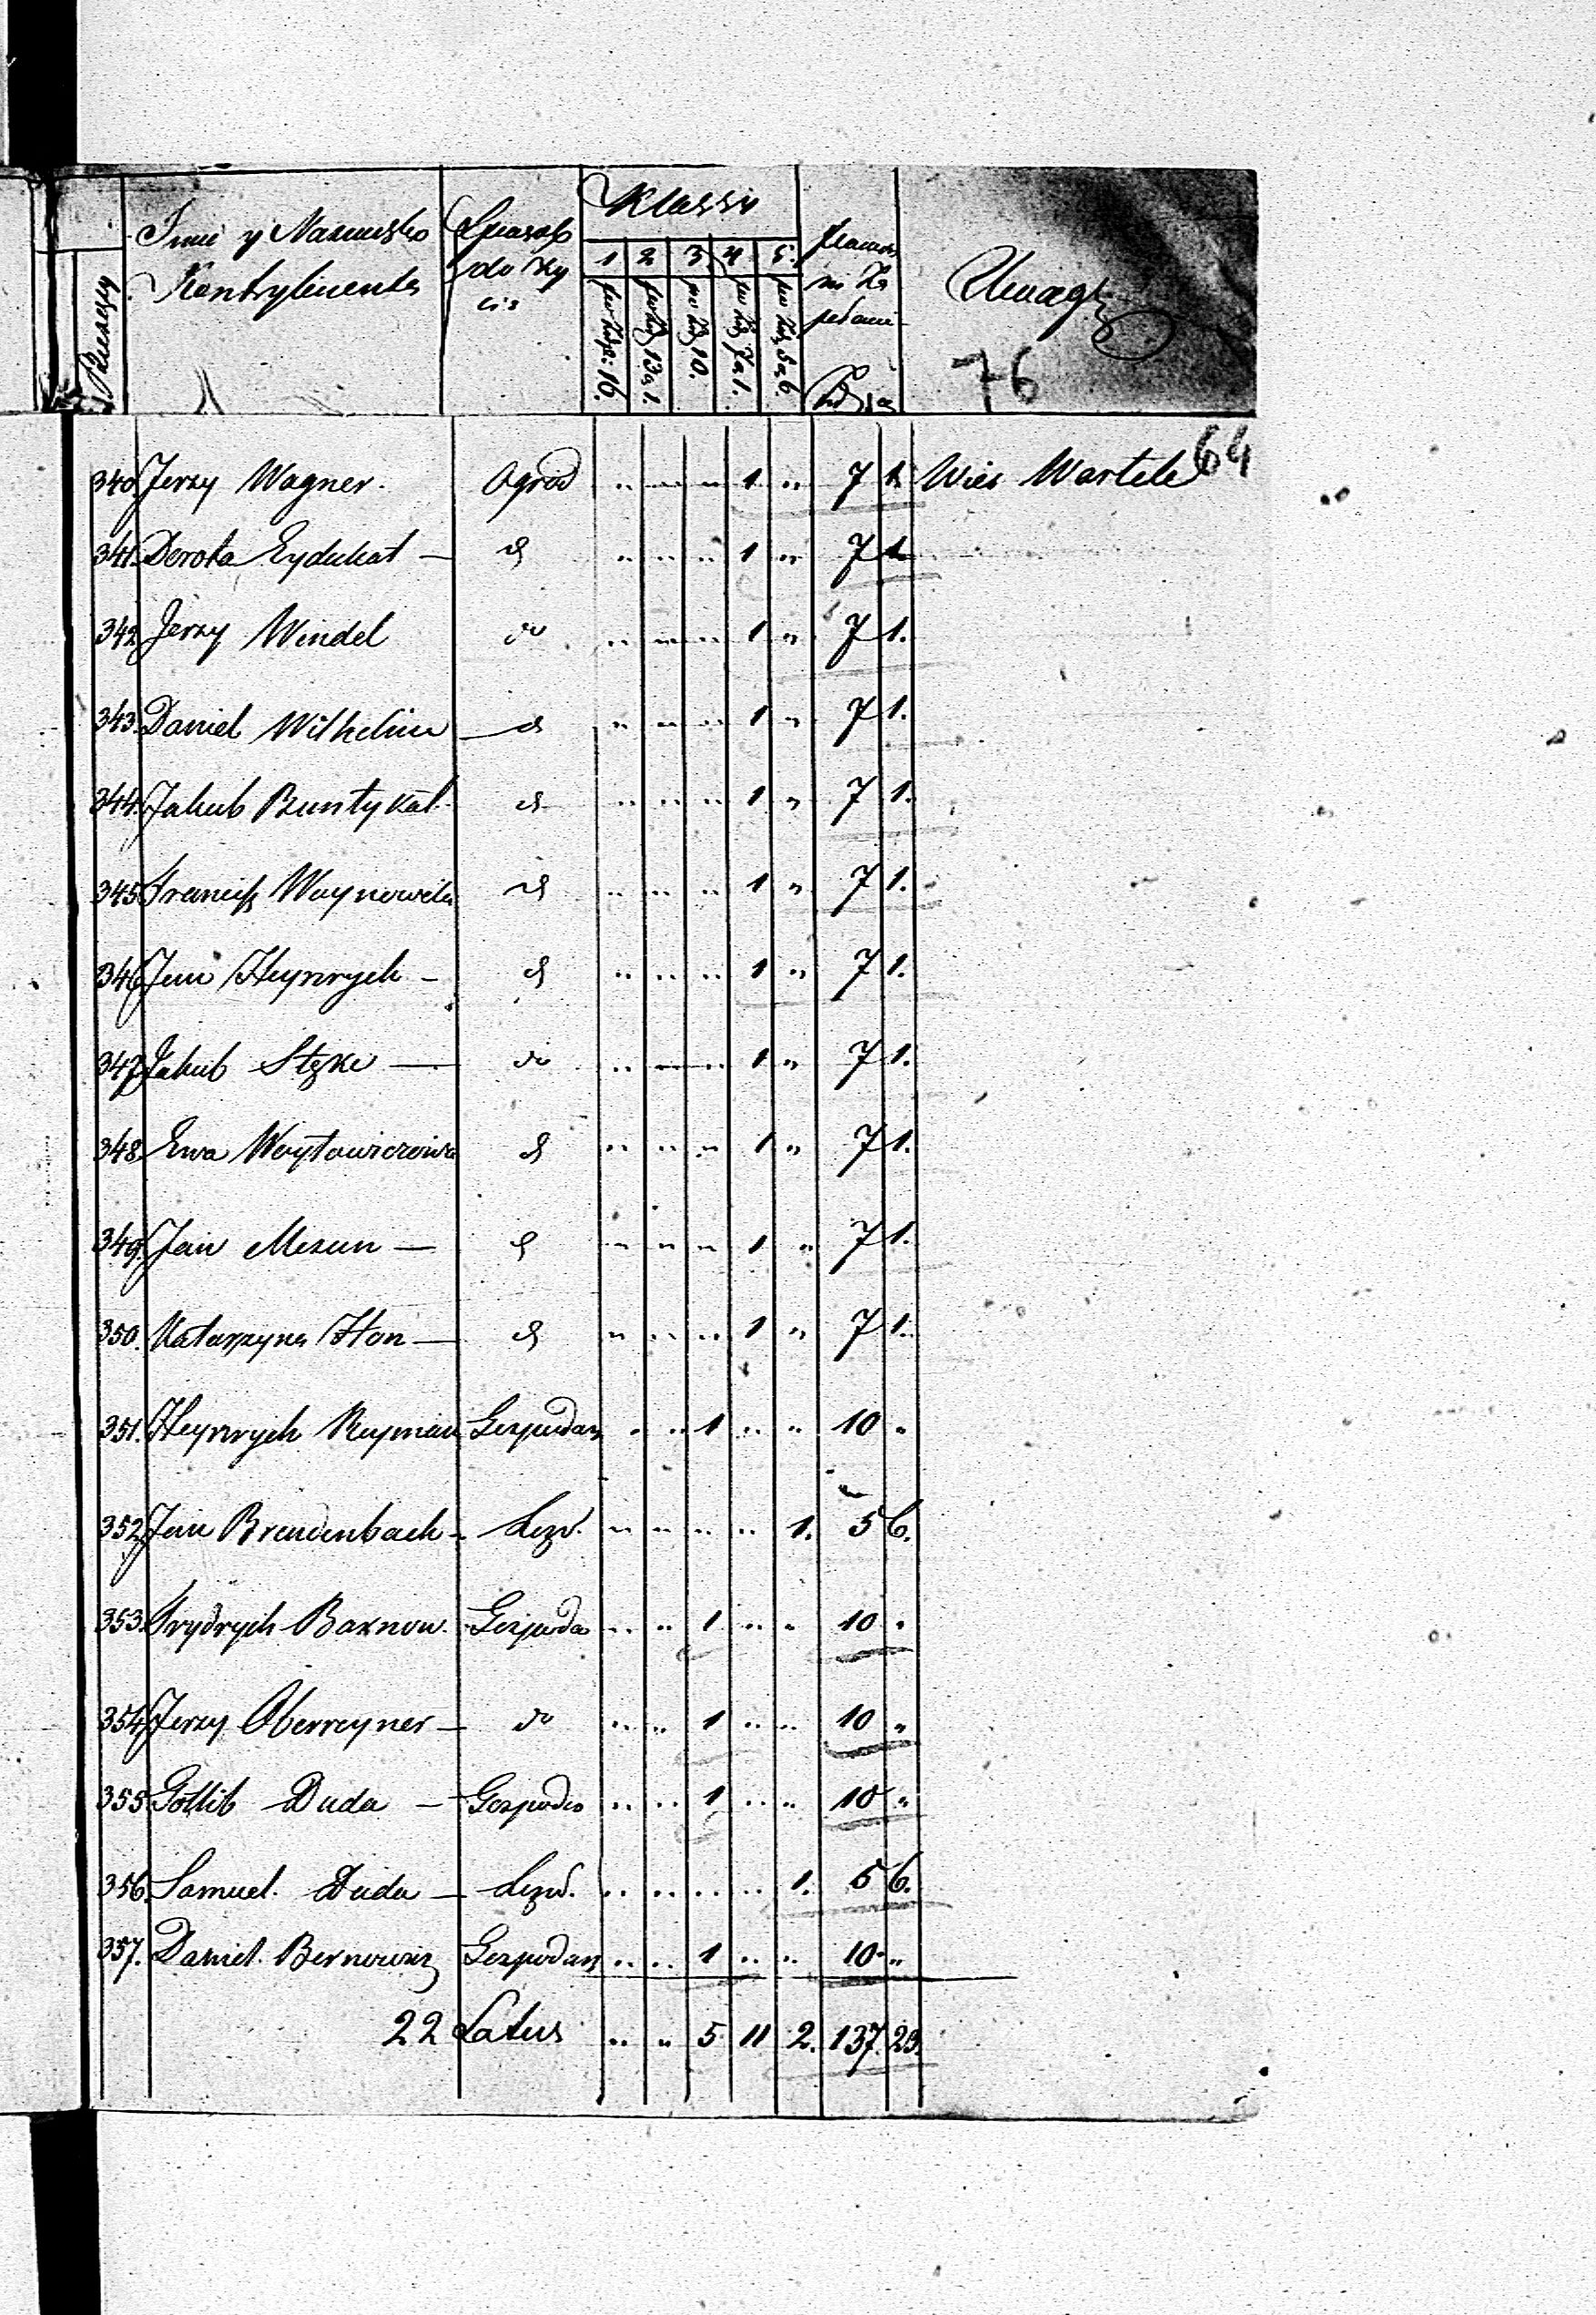 Imie y Nazwisko Kontrybuenta
Sposob do Zy cia
Klassy
1 2 3 4 5.
po Złp: 16. po Zł 13 g 1. po Zł 10. po Zł 7 g 1. po Zł 5 g 6.
Uwagi
76
64
340 Jerzy Wagner. Ogrod .. .. .. 1 .. 7 1. Wieś Wartele
341. Dorota Eydukat — do .. .. .. 1 .. 7 1.
342 Jerzy Windel do .. .. .. 1 .. 7 1.
343. Daniel Wilhelm — do .. .. .. 1 .. 7 1.
344. Jakub Buntykat do .. .. .. 1 .. 7 1.
345 do .. .. .. 1 .. 7 1.
346 Jan Heynrych — do .. .. .. 1 .. 7 1.
347 Jakub — do .. .. .. 1 .. 7 1.
348. Ewa Woytowiczowa do .. .. .. 1 .. 7 1.
349. Jan Mezun — do .. .. .. 1 .. 7 1.
350. Katarzyna Hon — do .. .. .. 1 .. 7 1.
351. Heynrych Reyman Gospodarz .. .. 1 .. .. 10 "
352. Jan Brendenbach — .. .. .. .. 1. 5 6.
353. Frydrych Gospoda .. .. 1 .. .. 10 "
354. Jerzy Oberreyner — do .. .. 1 .. .. 10 "
355 Gotlib Duda — Gospoda .. .. 1 .. .. 10 "
356. Samuel Duda — .. .. .. .. 1. 5 6.
357. Daniel Gospodarz .. .. 1 .. .. 10 "
22 Latus .. .. 5 11 2. 137. 23.